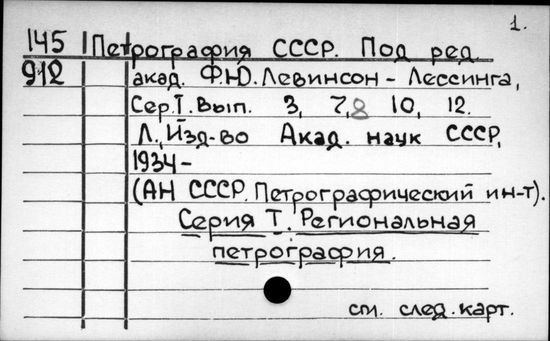 1.
145 Петрография СССР. Под ред.
912 акад. Ф.Ю. Левинсон-Лессинга,
Сер. I. Вып. 3, 7, 8 10, 12.
Л., Изд-во Акад. наук СССР,
1934-
(АН СССР. Петрографический ин-т).
Серия I. Региональная
петрография.
см. след. карт.